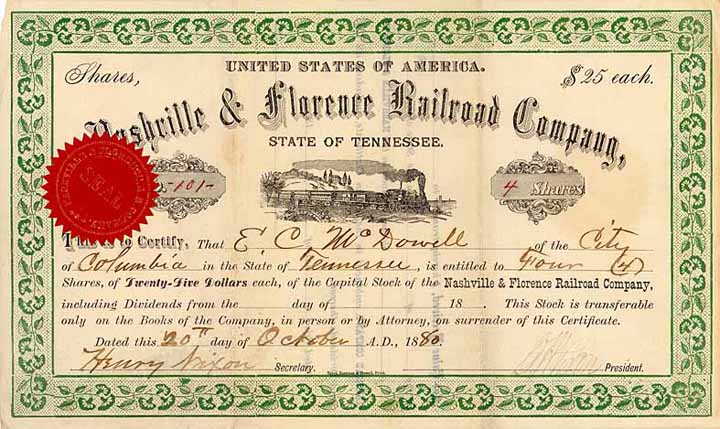 UNITED STATES OF AMERICA.
Shares, $25 each.
Nashville & Florence Railroad Company,
STATE OF TENNESSEE.
SEAL
-101-
4 Shares
This is to Certify, That E. C. McDowell of the City
of Columbia in the State of Tennessee, is entitled to Four (4)
Shares, of Twenty-Five Dollars each, of the Capital Stock of the Nashville & Florence Railroad Company,
including Dividends from the day of 18 . This Stock is transferable
only on the Books of the Company, in person or by Attorney, on surrender of this Certificate.
Dated this 20th day of October A.D., 1880.
Henry Nixon Secretary. President.